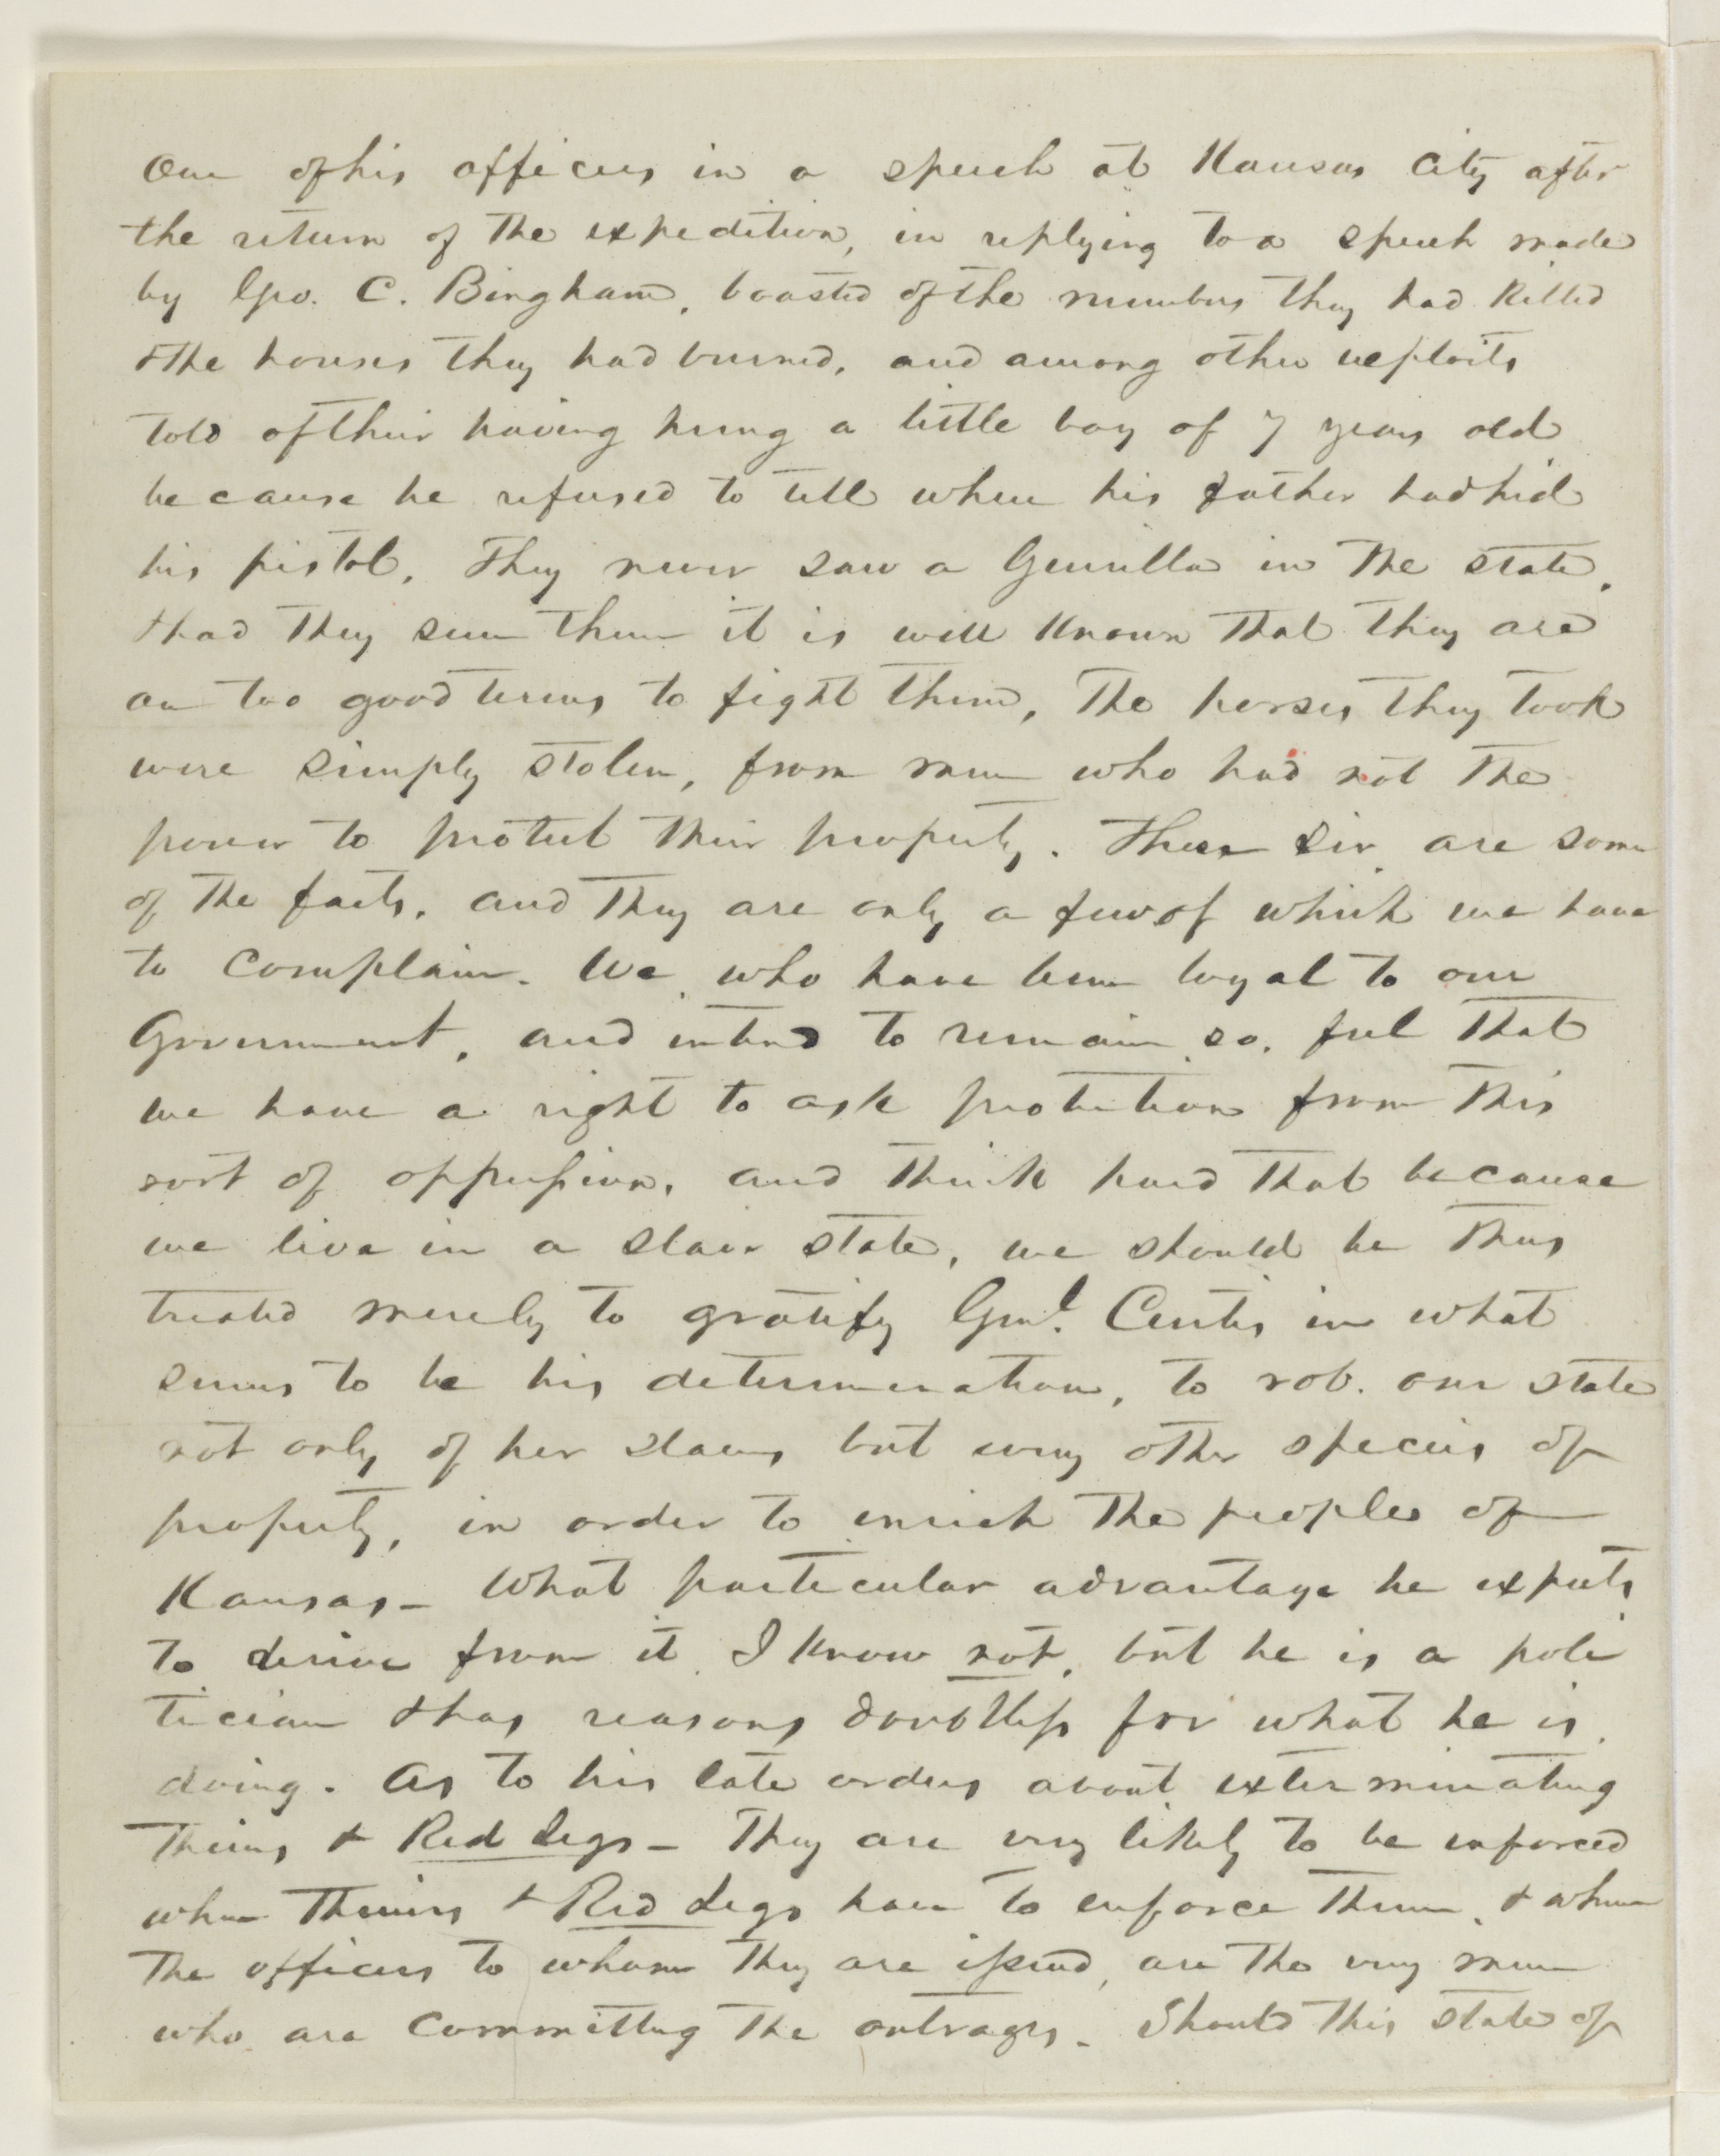 One of his officers in a speech at Kansas City after
the return of the expedition, in replying to a speech made
by Geo. C. Bingham, boasted of the numbers they had killed
& the houses they had burned, and among other exploits
told of their having hung a little boy of 7 years old
because he refused to tell where his father had hid
his pistol. They never saw a Guerilla in the state.
Had they seen them it is well known that they are
on too good terms to fight them, The horses they took
were simply stolen, from men who had not the
power to protect their property. These sir are some
of the facts, and they are only a few of which we have
to complain. We who have been loyal to our
Government, and intend to remain so, feel that
we have a right to ask protection from this
sort of oppression, and think hard that because
we live in a slave state, we should be thus
treated merely to gratify Genl. Curtis in what
seems to be his determination, to rob our state
not only of her slaves but every other species of
property, in order to enrich the people of
Kansas – What particular advantage he expects
to derive from it I know not, but he is a poli
tician & has reasons doubtless for what he is
doing. As to his late orders about exterminating
Thieves & Red Legs – They are very likely to be enforced
when Thieves & Red Legs have to enforce them, & when
the officers to whom they are issued, are the very men
who are committing the outrages. Should this state of